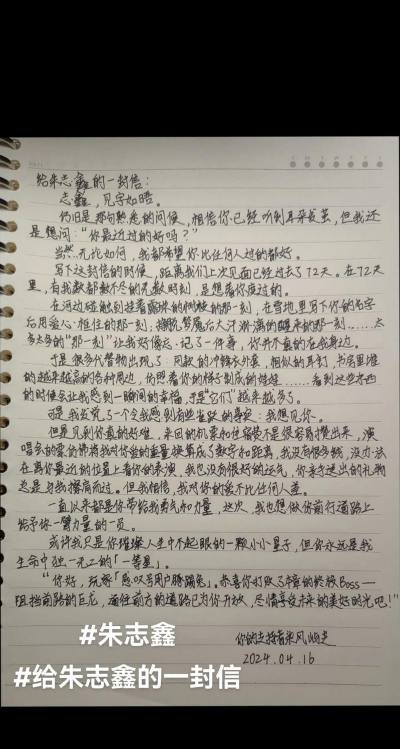 给朱志鑫的一封信：
志鑫，见字如晤。
仍旧是那句熟悉的问候，相信你已经听到耳朵长茧，但我还
是想问：“你最近过的好吗？”
当然，无论如何，我都希望你比任何人过的都好。
写下这封信的时候，距离我们上次见面已经过去了72天。在72天
里，有我数都数不尽的无数时刻，是想着你度过的。
在河边碰触到挂着露珠的树枝的那一刻，在雪地里写下你的名字
后用爱心框住的那一刻；被梦魇后大汗淋漓的醒来的那一刻……太
多太多的“那一刻”让我好像忘记了一件事，你并不真的在我身边。
于是很多代替物出现了，同款的冲锋衣外套，相似的耳钉，书房里堆
的越来越高的各种周边，仿照着你的样子制成的娃娃……看到这些东西
的时候会让我感到一瞬间的幸福，于是“它们”越来越多了。
可是我发觉了一个令我感到有些雀跃的事实：我想见你。
但是见到你真的好难，来回的机票和住宿费不是很容易攒出来，演
唱会的票价将我对你爱的重量换算成了数字和距离，我没有很多钱，没办法
在离你最近的位置上看你的表演，我也没有很好的运气，你亲手送出的礼物
总是与我擦肩而过。但我相信，我对你的爱不比任何人差。
一直以来都是你带给我勇气和力量，这次，我也想做你前行道路上
能予你一臂力量的一员。
或许我只是你璀璨人生中不起眼的一颗小小星子，但你永远是我
生命中独一无二的「一等星」。
“你好，玩家「感叹号用户腾踢兔」。恭喜你打败了本章的终极Boss——
阻挡前路的巨龙，通往前方的道路已为你开放，尽情享受未来的美好时光吧！”
你的支持者
2024.04.16
#朱志鑫
#给朱志鑫的一封信